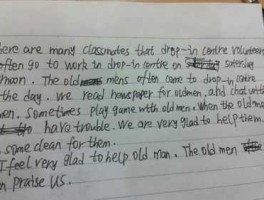 here are many classmates that drop-in centre volunteers
often go to work in drop-in centre on saturday
noon. The old mens often come to drop-in centre
the day. we read newspaper for oldmen, and chat with
men. Sometimes play game with old men. when the old m
have trouble. we are very glad to help them.
some clean for them.
I feel very glad to help old man. The old men
praise us.